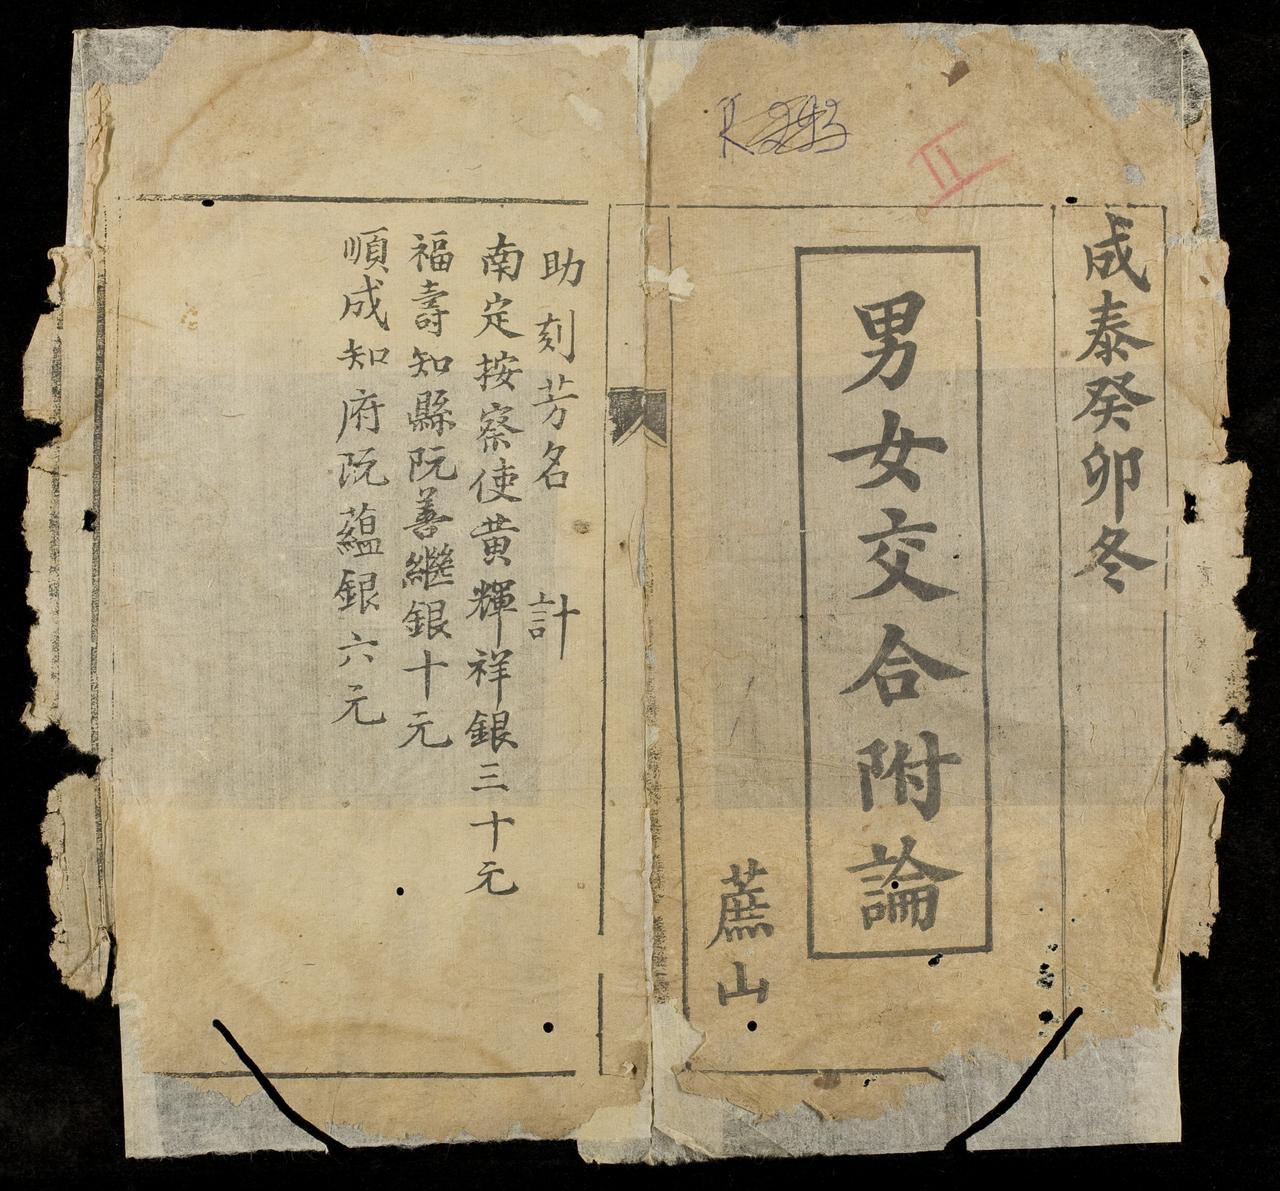 成泰癸卯冬
男女交合附論
蔗山
R 293
II
助刻芳名 計
南定按察使黄輝祥銀三十元
福壽知縣阮善繼銀十元
順成知府阮蘊銀六元